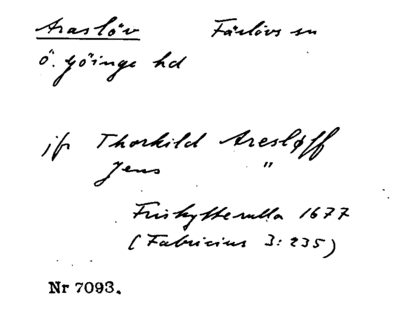 Araslöv Färlövs sn
Ö. Göinge hd
jfr Thorkild Aresløff
Jens "
Friskytterulla 1677
(Fabricius 3:235)
Nr 7093.